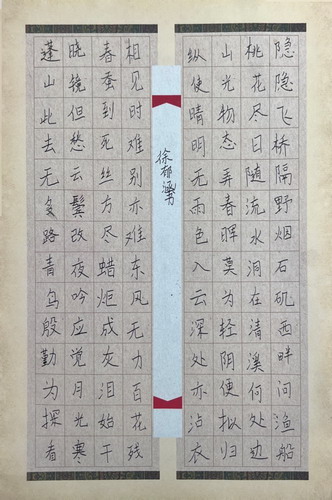 隐隐飞桥隔野烟石矶西畔问渔船
桃花尽日随流水洞在清溪何处边
山光物态弄春晖莫为轻阴便拟归
纵使晴明无雨色入云深处亦沾衣
徐郁涵
相见时难别亦难东风无力百花残
春蚕到死丝方尽蜡炬成灰泪始干
晓镜但愁云鬓改夜吟应觉月光寒
蓬山此去无多路青鸟殷勤为探看